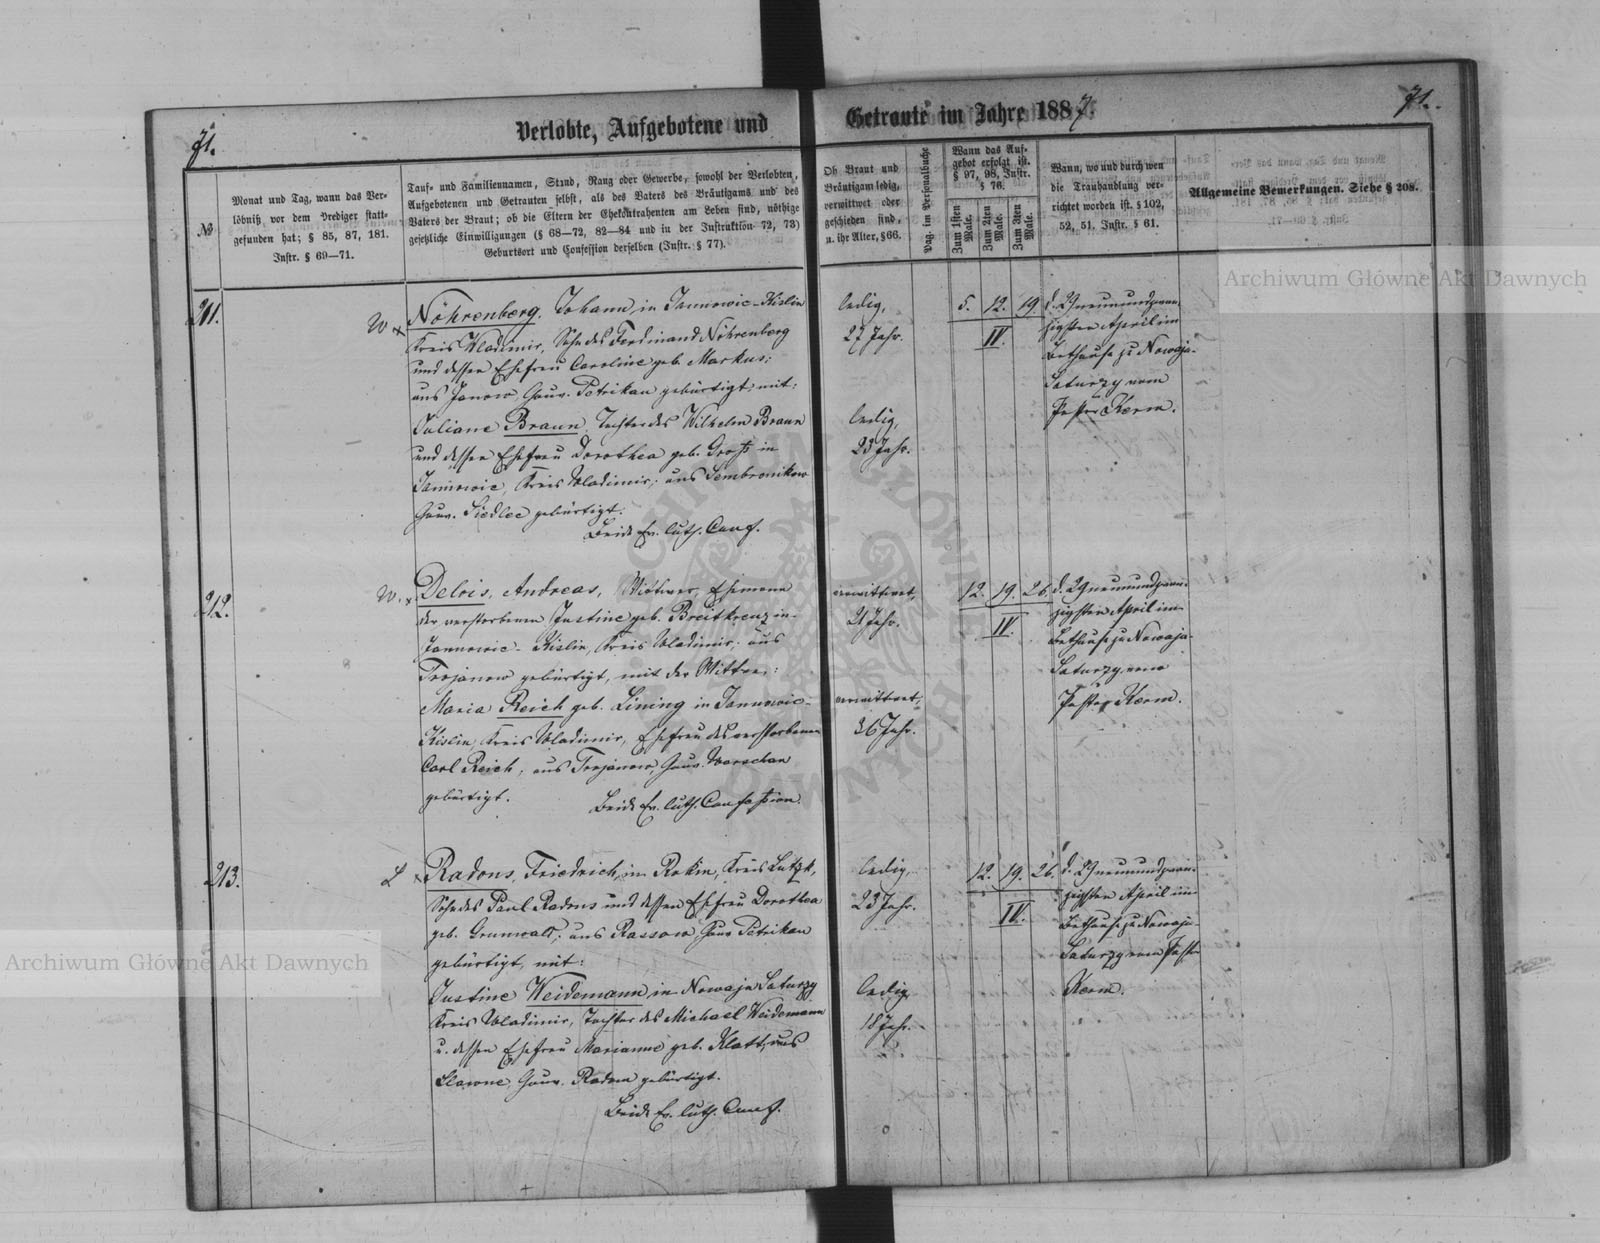 71.
Verlobte, Aufgebotene und
Getraute im Jahre 1887.
71.
№
Monat und Tag, wann das Ver-
löbniß vor dem Prediger statt-
gefunden hat; § 85, 87, 181.
Instr. § 69—71.
Tauf- und Familiennamen, Stand, Rang oder Gewerbe, sowohl der Verlobten,
Aufgebotenen und Getrauten selbst, als des Vaters des Bräutigams und des
Vaters der Braut; ob die Eltern der Ehekontrahenten am Leben sind, nöthige
gesetzliche Einwilligungen (§ 68—72, 82—84 und in der Instruktion 72, 73)
Geburtsort und Confession derselben (Instr. § 77).
Ob Braut und
Bräutigam ledig,
verwittwet oder
geschieden sind,
u. ihr Alter, § 66.
Pag. im Personalbuche
Wann das Auf-
gebot erfolgt ist.
§ 97, 98, Instr.
§ 76.
Zum 1sten Male.
Zum 2ten Male.
Zum 3ten Male.
Wann, wo und durch wen
die Trauhandlung ver-
richtet worden ist. § 102,
52, 51. Instr. § 61.
Allgemeine Bemerkungen. Siehe § 208.
211.
W x
Nöhrenberg, Johann, in Janowic-Kislin
Kreis Wladimir, Sohn des Ferdinand Nöhrenberg
und dessen Ehefrau Caroline geb. Markus;
aus Janow, Gouv. Petrikau gebürtigt, mit:
Juliane Braun, Tochter des Wilhelm Braun
und dessen Ehefrau Dorothea geb. Groß in
Kreis Wladimir; aus
Gouv. Siedlec gebürtigt.
Beide Ev. luth. Conf.
ledig,
27 Jahr.
ledig,
23 Jahr.
5. 12. 19.
IV.
d. 29 neunundzwan-
zigsten April im
Bethause zu Nowaja-
Saturzy vom
Pastor Kerm.
212.
W. x
Delois, Andreas, Wittwer, Ehemann
der verstorbenen Justine geb. Breitkreuz in
Kislin, Kreis Wladimir; aus
Trojanow gebürtigt, mit der Wittwe:
Maria Reich geb. Lining in
Kislin, Kreis Wladimir, Ehefrau des verstorbenen
Carl Reich; aus Trojanow, Gouv. Warschau
gebürtigt.
Beide Ev. luth. Confession.
verwittwet,
Jahr.
verwittwet,
36 Jahr.
12. 19. 26.
IV.
d. 29 neunundzwan-
zigsten April im
Bethause zu Nowaja-
Saturzy vom
Pastor Kerm.
213.
L x
Radons, Friedrich, in Rokin, Kreis Lutzk,
Sohn des Paul Radons und dessen Ehefrau Dorothea
geb. Grunwald; aus Rassow, Gouv. Petrikau
gebürtigt, mit:
Justine Weidemann, in Nowaja Saturzy
Kreis Wladimir, Tochter des Michael Weidemann
u. dessen Ehefrau Marianne geb. Klatt; aus
Gouv. Radom gebürtigt.
Beide Ev. luth. Conf.
ledig,
23 Jahr.
ledig,
18 Jahr.
12. 19. 26.
IV.
d. 29 neunundzwan-
zigsten April im
Bethause zu Nowaja-
Saturzy vom Pastor
Kerm.
Archiwum Główne Akt Dawnych
Archiwum Główne Akt Dawnych